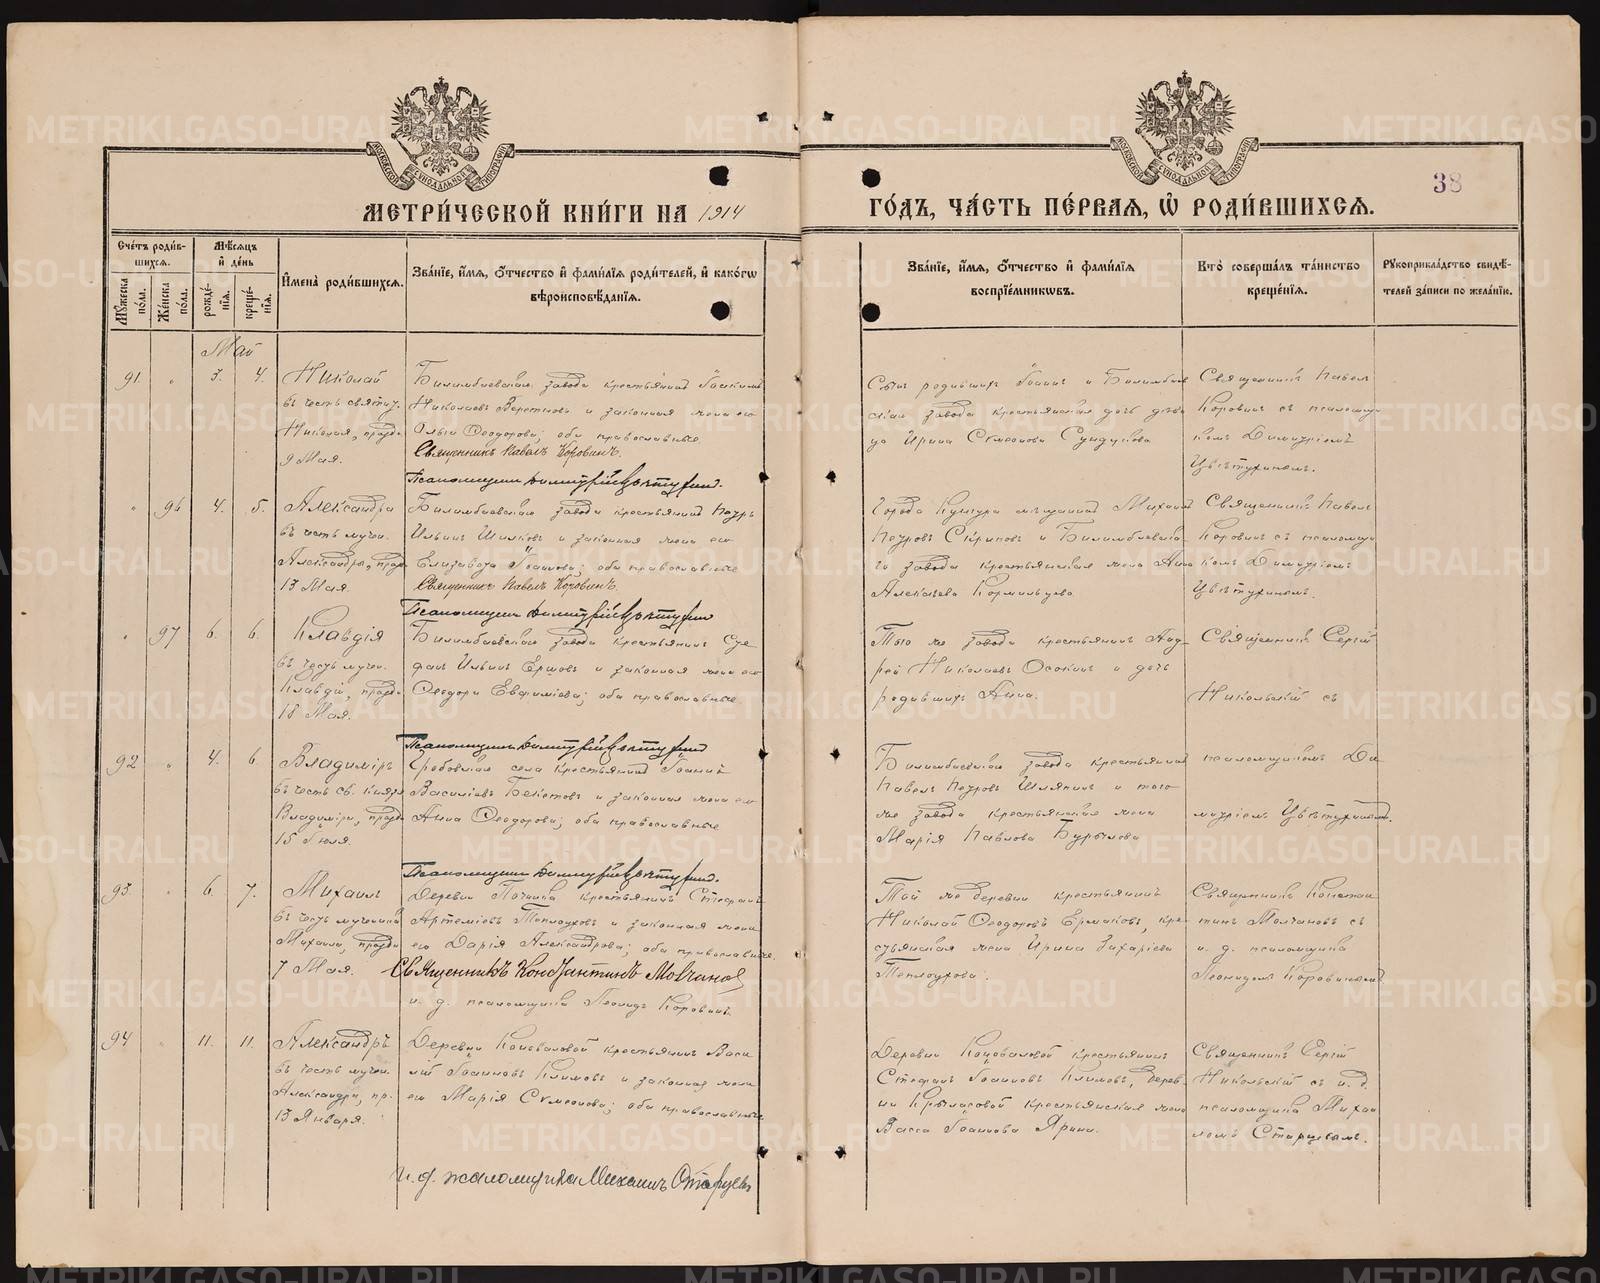 38
МЕТРИ́ЧЕСКОЙ КНИ́ГИ НА 1914
ГО́ДЪ, ЧА́СТЬ ПЕ́РВАЯ, Ѡ҆ РОДИ́ВШИХСЯ.
Сче́тъ роди́в-
шихся.
Мꙋ́жеска по́ла.
Же́нска по́ла.
Мѣ́сяцъ
и҆ де́нь
рожде́-
нїя.
креще́-
нїя.
И҆мена̀ роди́вшихся.
Зва́нїе, и҆́мя, ѻ҆́тчество и҆ фами́лїя роди́телей, и҆ како́гѡ
вѣроисповѣ́данїя.
Зва́нїе, и҆́мя, ѻ҆́тчество и҆ фами́лїя
воспрїе́мникѡвъ.
Кто̀ соверша́лъ та́инство
креще́нїя.
Рꙋкоприкла́дство свидѣ́-
телей за́писи по жела́нїю.
Май
91. " 3. 4.
Николай
въ честь святит.
Николая, празд.
9 Мая.
Билимбаевскаго завода крестьянинъ Іоакимъ
Николаевъ Веретновъ и законная жена его
Ольга Ѳеодорова; оба православные
Священникъ Павелъ Коровинъ.
Псаломщикъ Димитрій Цвѣтухинъ.
Сынъ родившихъ Іоаннъ и Билимбаев
скаго завода крестьянская дочь дѣви
ца Ирина Сѵмеонова Сундукова
Священникъ Павелъ
Коровинъ съ псаломщи
комъ Димитріемъ
Цвѣтухинымъ.
" 96 4. 5.
Александра
въ честь мучен.
Александры, празд.
13 Мая.
Билимбаевскаго завода крестьянинъ Петръ
Ильинъ Шилковъ и законная жена его
Елизавета Іоаннова; оба православные
Священникъ Павелъ Коровинъ.
Псаломщикъ Димитрій Цвѣтухинъ
Города Кунгура мѣщанинъ Михаилъ
Петровъ Скриповъ и Билимбаевска
го завода крестьянская жена Анна
Алексѣева Кормильцева
Священникъ Павелъ
Коровинъ съ псаломщи
комъ Димитріемъ
Цвѣтухинымъ.
" 97 6. 6.
Клавдія
въ честь мучен.
Клавдіи, празд.
18 Мая.
Билимбаевскаго завода крестьянинъ Сте
фанъ Ильинъ Ершовъ и законная жена его
Ѳеодора Евѳиміева; оба православные
Псаломщикъ Димитрій Цвѣтухинъ
Того же завода крестьянинъ Анд-
рей Николаевъ Осокинъ и дочь
родившихъ Анна.
Священникъ Сергій
Никольскій съ
92 " 4. 6
Владиміръ
въ честь св. князя
Владиміра, празд.
15 Іюля.
Гробовскаго села крестьянинъ Іоаннъ
Василіевъ Бекетовъ и законная жена его
Анна Ѳеодорова; оба православные
Псаломщикъ Димитрій Цвѣтухинъ.
Билимбаевскаго завода крестьянинъ
Павелъ Петровъ Шляпинъ и того
же завода крестьянская жена
Марія Павлова Бурылова
псаломщикомъ Ди
митріемъ Цвѣтухинымъ.
93 " 6. 7.
Михаилъ
въ честь мученика
Михаила, празд.
7 Мая.
Деревни Починка крестьянинъ Стефанъ
Артеміевъ Теплоуховъ и законная жена
его Дарія Александрова; оба православные.
Священникъ Константинъ Молчановъ
и. д. псаломщика Леонидъ Коровинъ
Той же деревни крестьянинъ
Николай Ѳеодоровъ Ермаковъ, кре-
стьянская жена Ирина Захаріева
Теплоухова.
Священникъ Констан
тинъ Молчановъ съ
и. д. псаломщика
Леонидомъ Коровинымъ
94 " 11. 11.
Александръ
въ честь мучен.
Александра, пр.
13 Января.
Деревни Коноваловой крестьянинъ Васи
лій Іоанновъ Климовъ и законная жена
его Марія Сѵмеонова; оба православные
и. д. псаломщика Михаилъ Старцевъ
Деревни Коноваловой крестьянинъ
Стефанъ Іоанновъ Климовъ, дерев-
ни Крыласовой крестьянская жена
Васса Іоаннова Ярина.
Священникъ Сергій
Никольскій съ и. д.
псаломщика Михаи
ломъ Старцевымъ.